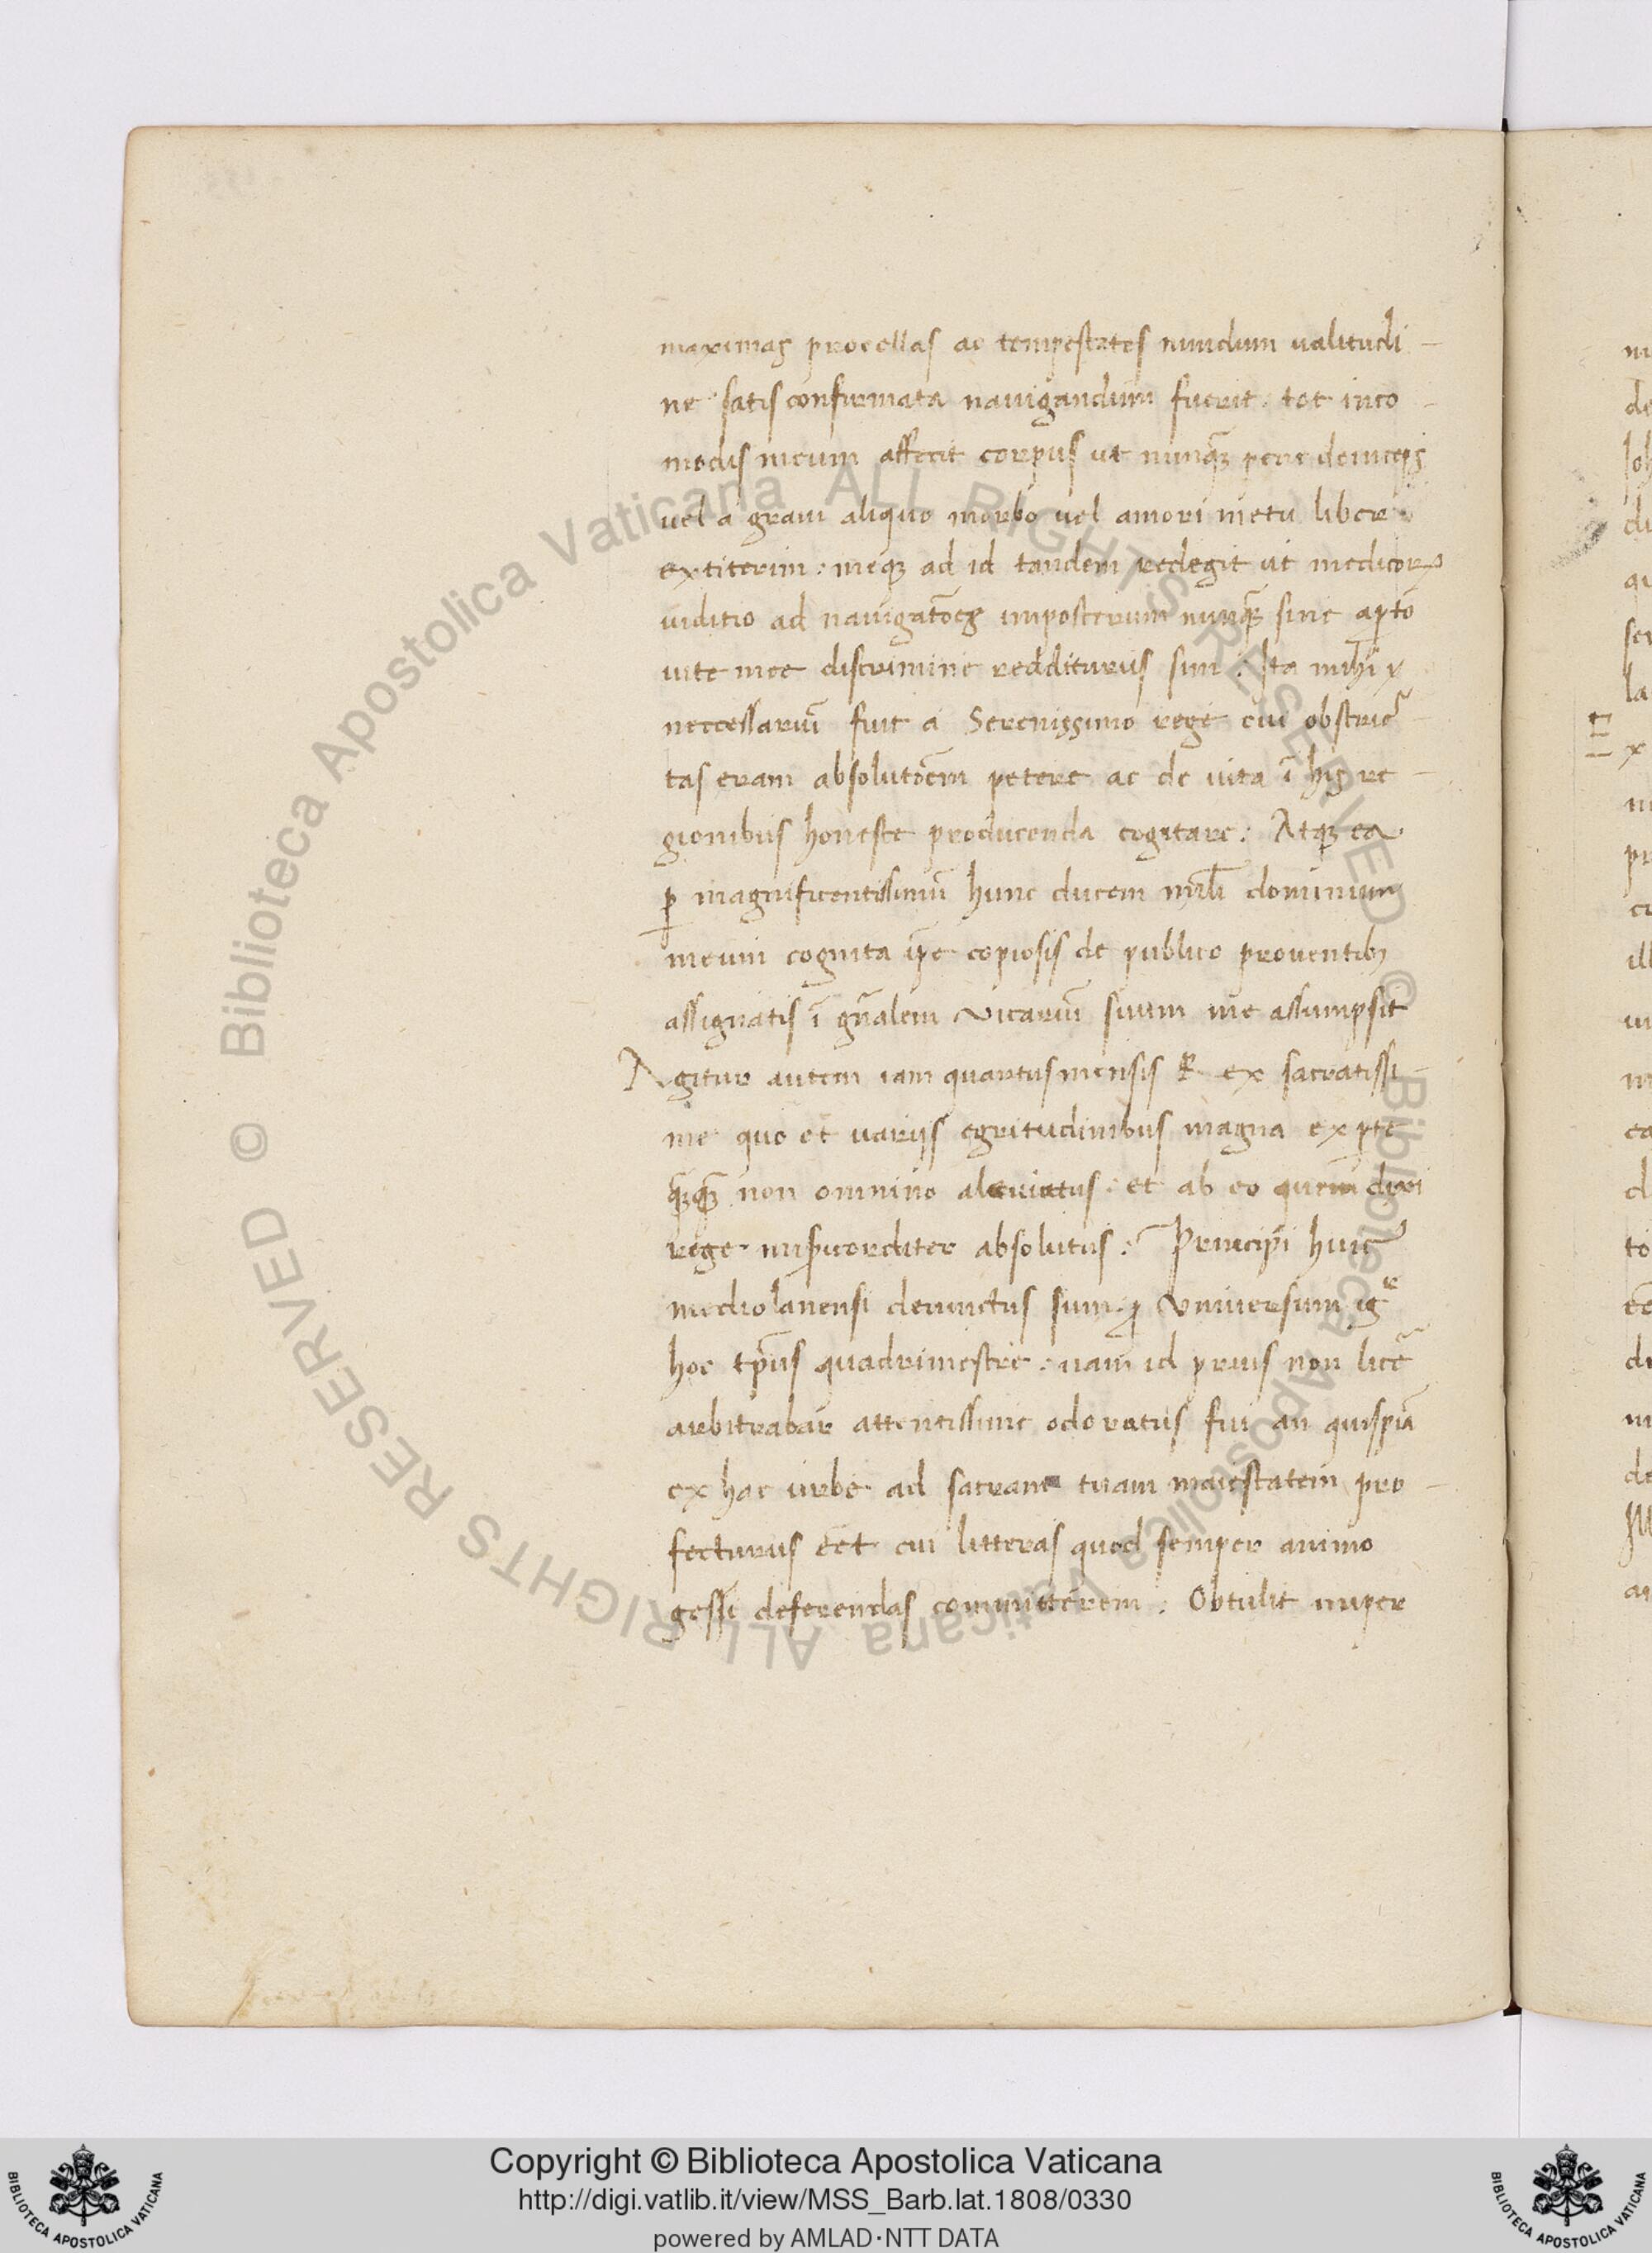 maximas procellas ac tempestates nundum ualitudi-
ne satis confirmata nauigandum fuerit. tot inco-
modis meum affecit corpus ut nunq̃ pene deinceps
uel a graui aliquo morbo uel a mori metu liber
extiterim: meq; ad id tandem redegit ut medicoꝝ
iuditio ad nauigatões imposterum nunq̃ sine apto
uite mee discrimine redditurus sim: Ita mihi
neccessariũ fuit a Serenissimo rege cui obstric̃
tas eram absolutõem petere ac de uita ĩ his re-
gionibus honeste producenda cogitare: Atq; ea
ꝑ magnificentissimũ hunc ducem mr̃li dominum
meum cognita ip̃e copiosis de publico prouentib;
assignatis ĩ gñalem vicariũ suum me assumpsit
Agitur autem iam quartus mensis R ex sacratissi-
me quo et varijs egritudinibus magna ex pte
q̃q̃ non omnino aleuiatus: et ab eo quem dixi
rege misericorditer absolutus: Principi huic
mediolanensi deuinctus sum. ꝓ vniuersum ig̃r
hoc tp̃us quadrimestre: nam id prius non licẽ
arbitrabar attentissime odoratus fui an quispiã
ex hac urbe ad sacram tuam maiestatem pro-
fecturus eẽt cui litteras quod semper animo
gessi deferendas committerem: Obtulit nuper
Copyright © Biblioteca Apostolica Vaticana
http://digi.vatlib.it/view/MSS_Barb.lat.1808/0330
powered by AMLAD·NTT DATA
BIBLIOTECA APOSTOLICA VATICANA
BIBLIOTECA APOSTOLICA VATICANA
© Biblioteca Apostolica Vaticana ALL RIGHTS RESERVED
© Biblioteca Apostolica Vaticana ALL RIGHTS RESERVED